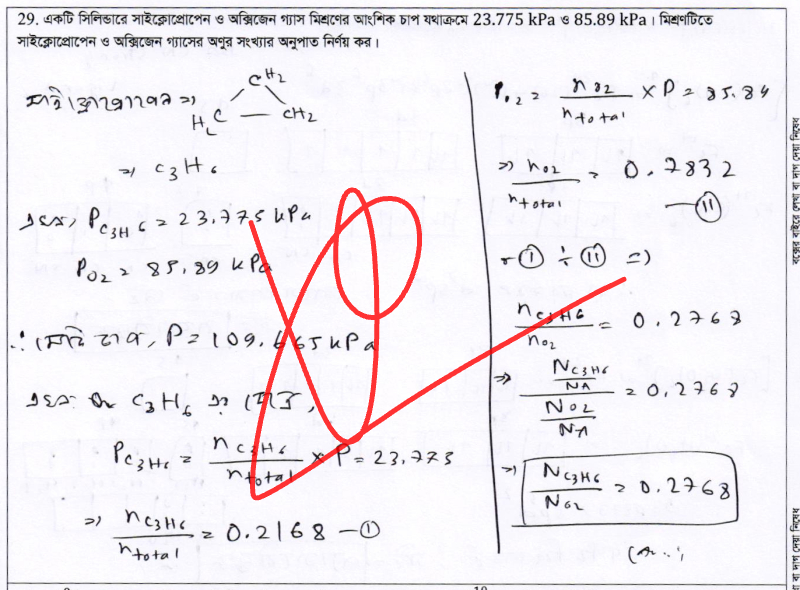 29. একটি সিলিন্ডারে সাইক্লোপ্রোপেন ও অক্সিজেন গ্যাস মিশ্রণের আংশিক চাপ যথাক্রমে 23.775 kPa ও 85.89 kPa। মিশ্রণটিতে
সাইক্লোপ্রোপেন ও অক্সিজেন গ্যাসের অণুর সংখ্যার অনুপাত নির্ণয় কর।
সাইক্লোপ্রোপেন ⇒
CH₂
H₂C — CH₂
⇒ C₃H₆
এখন, P_C₃H₆ = 23.775 kPa
P_O₂ = 85.89 kPa
∴ মোট চাপ, P = 109.665 kPa
এখন C₃H₆ এর ক্ষেত্রে,
P_C₃H₆ = n_C₃H₆ / n_total × P = 23.775
⇒ n_C₃H₆ / n_total = 0.2168 — ①
P_O₂ = n_O₂ / n_total × P = 85.89
⇒ n_O₂ / n_total = 0.7832
— ⑪
① ÷ ⑪ ⇒
n_C₃H₆ / n_O₂ = 0.2768
⇒ (N_C₃H₆ / N_A) / (N_O₂ / N_A) = 0.2768
⇒ N_C₃H₆ / N_O₂ = 0.2768